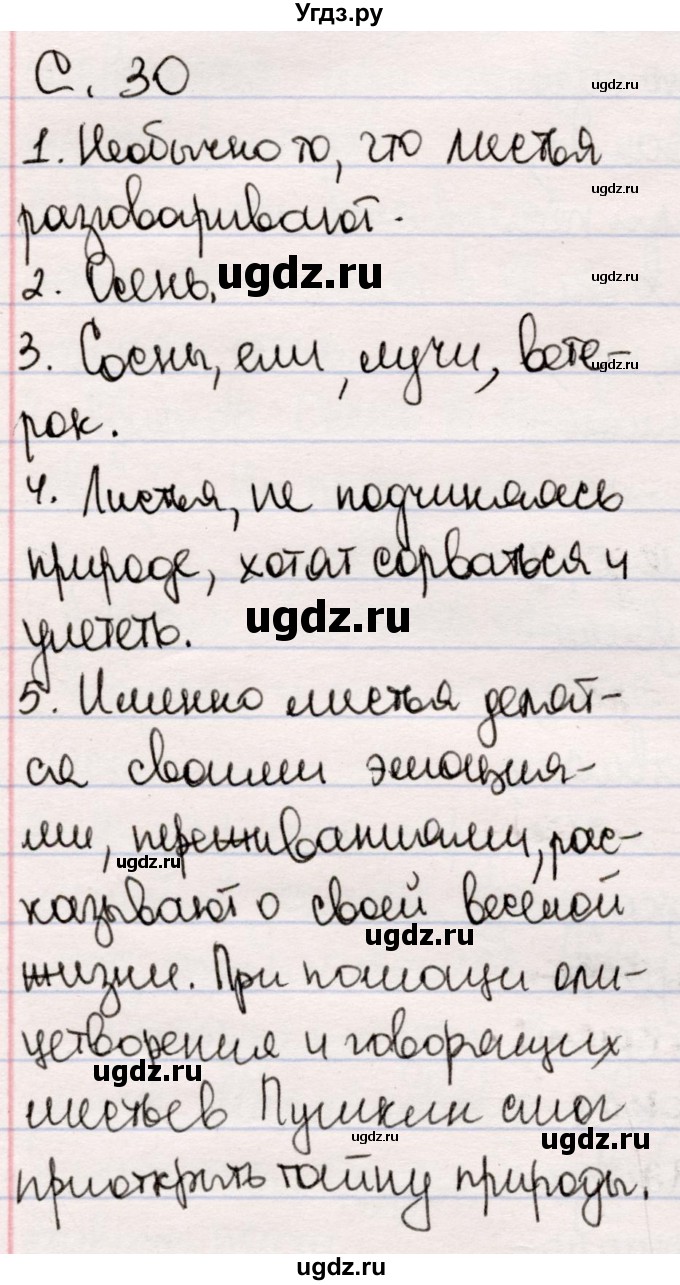 Угдз.ру
С. 30
ugdz.ru
1. Необычно то, что листья
ugdz.ru
разговаривают.
2. Осень.
ugdz.ru
ugdz.ru
3. Сосны, ели, лучи, вете-
ugdz.ru
рок.
4. Листья, не подчиняясь
природе, хотят сорваться и
улететь.
ugdz.ru
5. Именно листья делят-
ся своими эмоция-
ми, переживаниями, рас-
ugdz.ru
казывают о своей весёлой
ugdz.ru
жизни. При помощи оли-
цетворения и говорящих
ugdz.ru
листьев Пушкин смог
ugdz.ru
ugdz.ru
приоткрыть тайну природы.
ugdz.ru